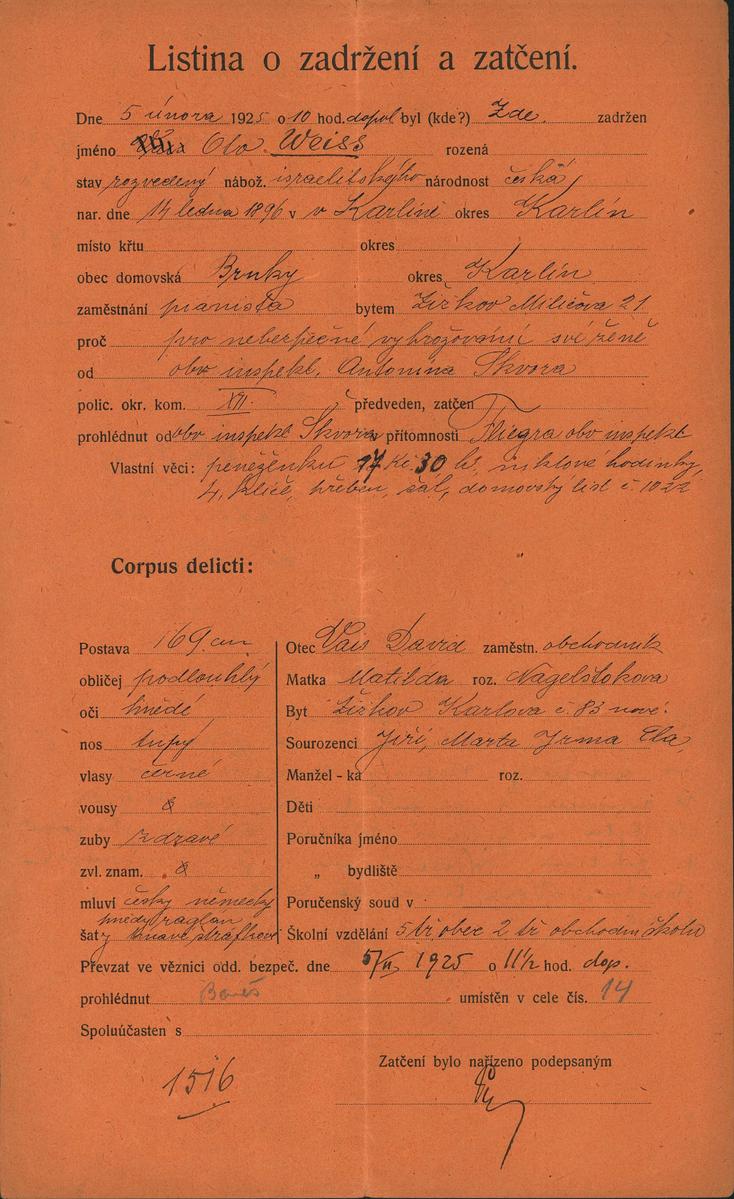 Listina o zadržení a zatčení.
Dne 5 února 1925 o 10 hod. dopol byl (kde?) Zde. zadržen
jméno Oto Weiss rozená
stav rozvedený nábož. israelitského národnost česká
nar. dne 14 ledna 1896 v v Karlíně okres Karlín
místo křtu okres
obec domovská Brnky okres Karlín
zaměstnání pianista bytem Žižkov Miličova 21
proč pro nebezpečné vyhrožování své ženě
od obv inspekt. Antonína Skvora
polic. okr. kom. XII. předveden, zatčen
prohlédnut od obv inspekt Skvora v přítomnosti Fliegra obv inspekt
Vlastní věci: peněženku 17 Kč 30 h, niklové hodinky,
4, klíče, hřeben, šál, domovský list č. 1022
Corpus delicti:
Postava 169 cm
obličej podlouhlý
oči hnědé
nos tupý
vlasy černé
vousy
zuby zdravé
zvl. znam.
mluví česky německy
hnědý raglan,
šaty tmavé
Otec Vais David zaměstn. obchodník
Matka Matilda roz. Nagelštokova
Byt Žižkov Karlova č. 83 nové.
Sourozenci Jiří, Marta Irma Ela,
Manžel - ka roz.
Děti
Poručníka jméno
„ bydliště
Poručenský soud v
Školní vzdělání 5 tř obec 2 tř obchodní školu
Převzat ve věznici odd. bezpeč. dne 5/II 1925 o 11½ hod. dop.
prohlédnut umístěn v cele čís. 14
Spoluúčasten s
Zatčení bylo nařízeno podepsaným
1516